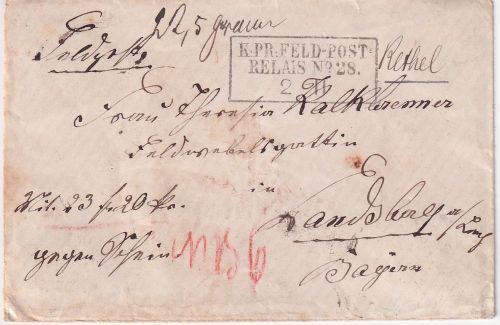 Feldpost
22,5 gramm
K.PR:FELD-POST-
RELAIS No 28.
2 11
Rethel
Frau Theresia Kalkbrenner
Feldwebelsgattin
in
Landsberg a/Lech
Bayern
Mit. 23 f 20 kr.
gegen Schein